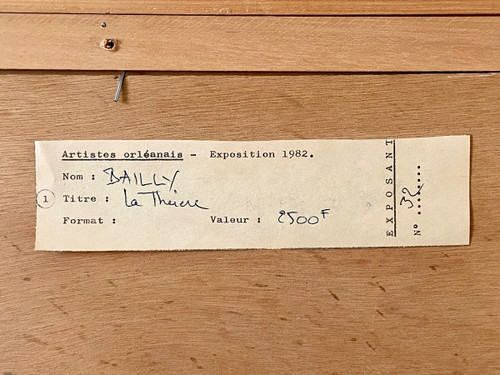 Artistes orléanais - Exposition 1982.
Nom : BAILLY
1 Titre : La Théière
Format : Valeur : 2500 F
EXPOSANT
N° 32